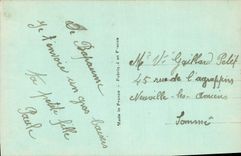 De Bapaume
Je t'envoie un gros baisers
Ta petite fille
Paule
Made in France - Fabriqué en France
Mr Vr Gaillard Petit
45 rue de l'agrappin
Neuville-les-Amiens
Somme